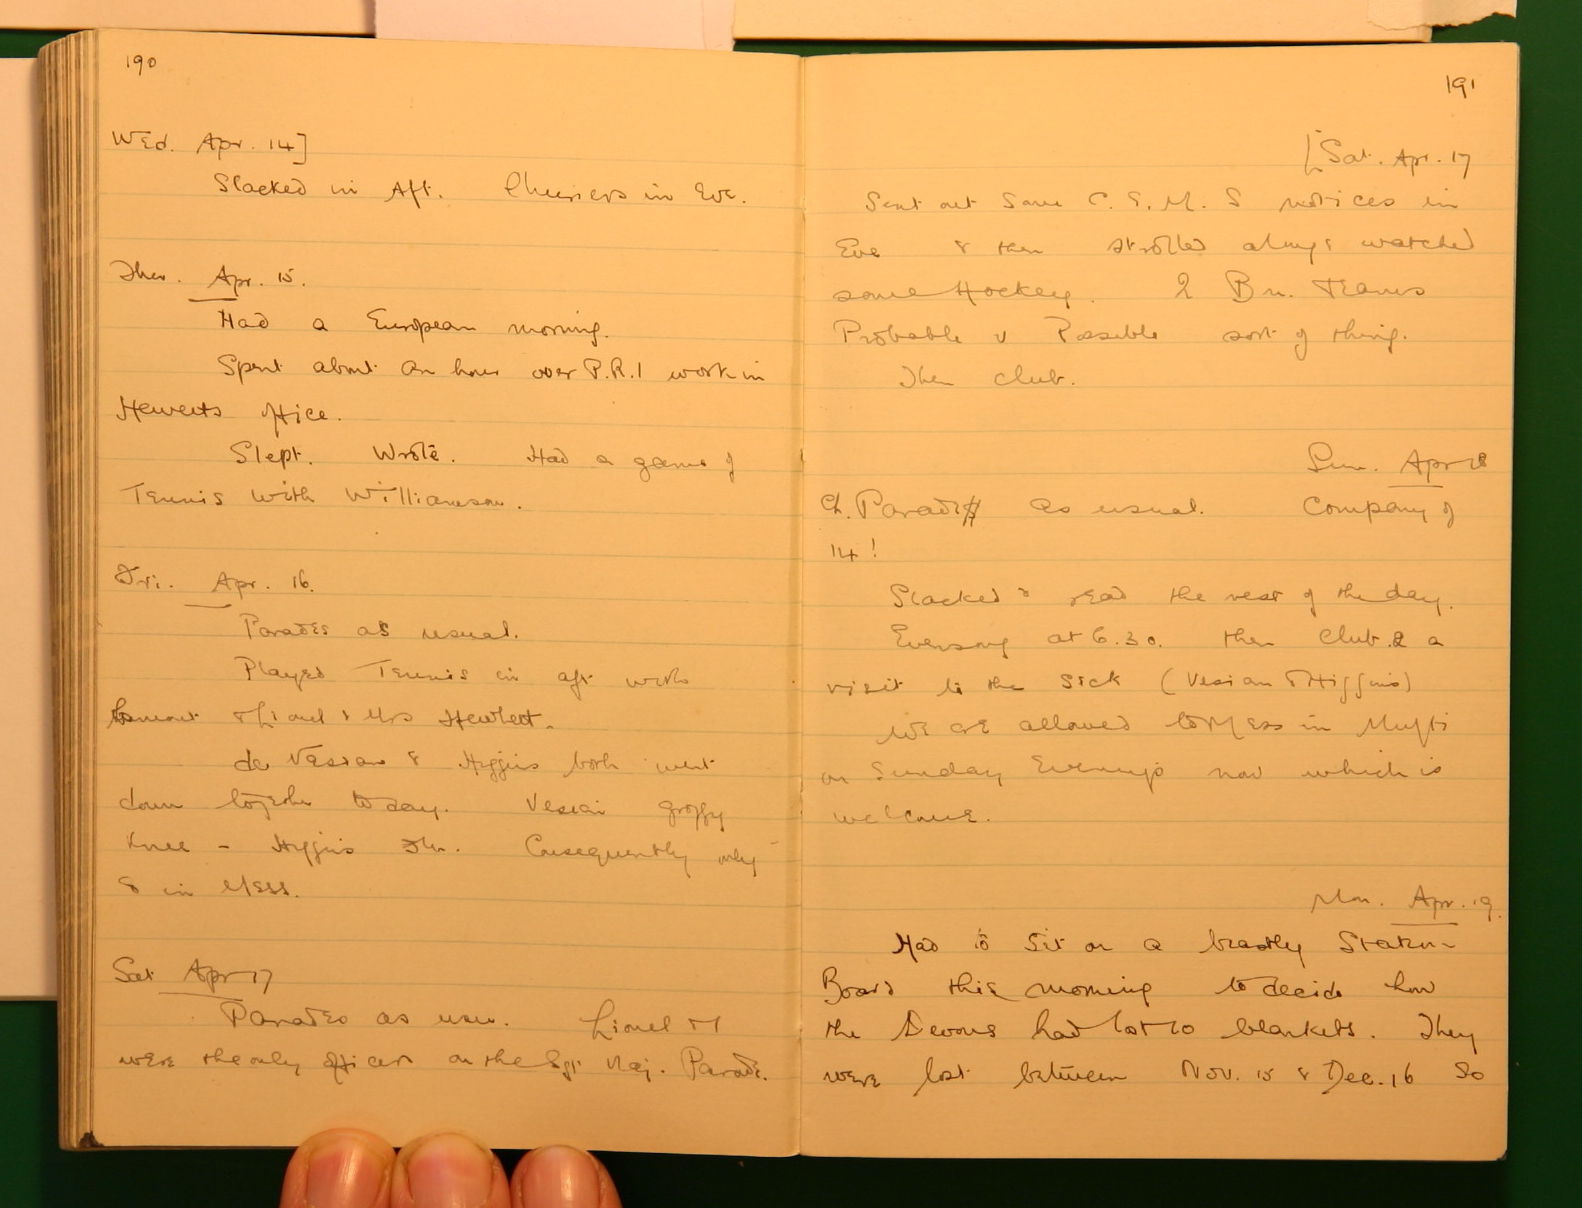 190
Wed. Apr. 14]
Slacked in Aft. in Eve.
Thur. Apr. 15.
Had a European morning.
Spent about an hour over P.R.I work in
Hewetts office.
Slept. Wrote. Had a game of
Tennis with Williamson.
Fri. Apr. 16.
Parades as usual.
Played Tennis in aft with
& Lionel & Mrs Hewlett.
de Vesian & Higgins both went
down together today. Vesian groggy
Knee - Higgins Flu. Consequently only
8 in Mess.
Sat Apr 17
Parades as usu. Lionel & I
were the only officers on the Sgt Maj. Parade.
191
[Sat. Apr. 17
Sent out some C.S.M.S notices in
Eve & then strolled along & watched
some Hockey. 2 Bn. Teams
Probable v Possible sort of thing.
Then club.
Sun. Apr 18
Ch. Parade as usual. Company of
14!
Slacked & read the rest of the day.
Evensong at 6.30. then Club. & a
visit to the sick (Vesian & Higgins)
We are allowed to Mess in Mufti
on Sunday Evenings now which is
welcome.
Mon. Apr. 19.
Had to sit on a beastly Station
Board this morning to decide how
the Devons had lost 10 blankets. They
were lost between Nov. 15 & Dec. 16 So